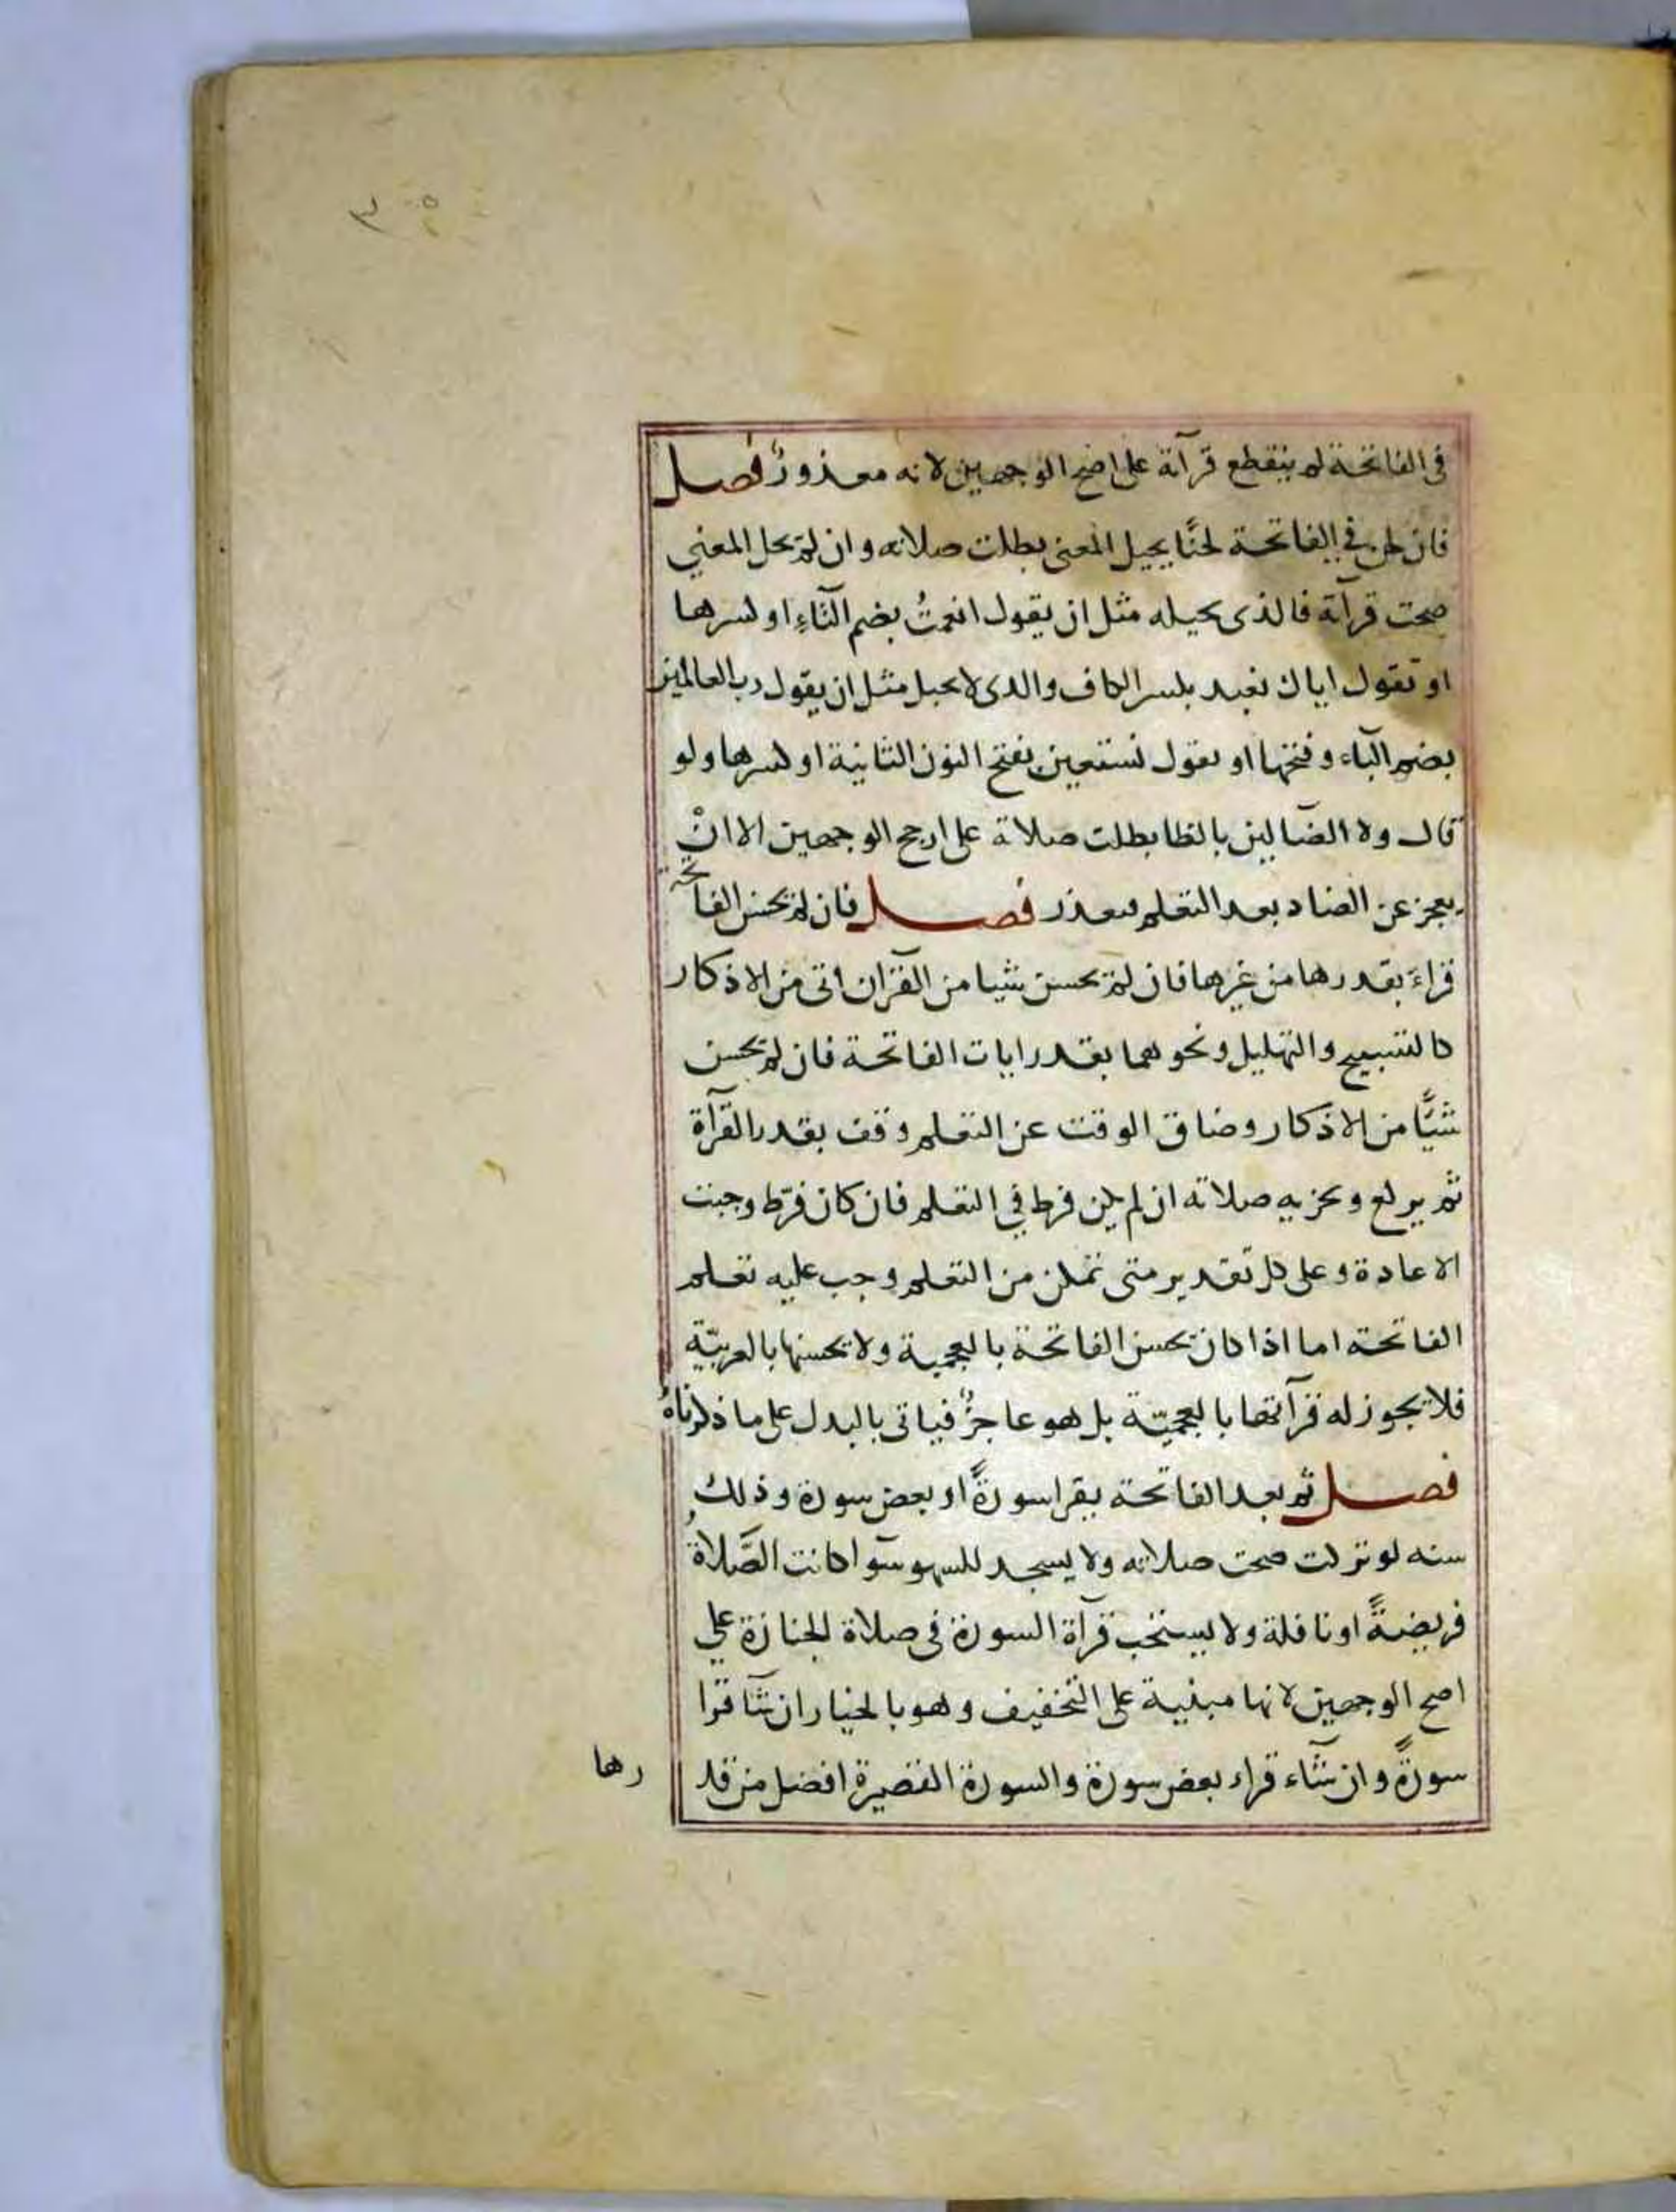 في الفاتحة لم ينقطع قرآة على اصح الوجهين لانه معذورٌ فصل
فان لحن في الفاتحة لحنًا يحيل المعنى بطلت صلاته وان لم يحل المعني
صحت قرآة فالذى يحيله مثل ان يقول انعمتُ بضم التاءِ او كسرها
او تقول اياك نعبد بكسر الكاف والذى لا يحيل مثل ان يقول رب العالمين
بضم البآء وفتحها او يقول نستعين بفتح النون الثانية او كسرها ولو
قال ولا الضآلين بالظا بطلت صلاة على ارجح الوجهين الا انْ
يعجز عن الضاد بعد التعلم فيعذر فصل فان لم يحسن الفاتحة
قراءَ بقدرها من غيرها فان لم يحسن شيا من القرآن اتى من الاذكار
كالتسبيح والتهليل ونحوهما بقدر ايات الفاتحة فان لم يحسن
شيًّا من الاذكار وضاق الوقت عن التعلم وقف بقدر القرآة
ثم يركع ويجزيه صلاته ان لم يكن فرط في التعلم فان كان فرّط وجبت
الاعادة وعلى كل تقدير متى تمكن من التعلم وجب عليه تعلم
الفاتحته اما اذا كان يحسن الفاتحة بالعجمية ولا يحسنها بالعربيّة
فلا يجوز له قرآتها بالعجميّة بل هو عاجزٌ فياتى بالبدل على ما ذكرناهُ
فصل ثم بعد الفاتحة يقرا سورةً او بعض سورة وذلك
سنه لو تركت صحت صلاته ولا يسجد للسهو سوآ اكانت الصَّلاةُ
فريضةً او نافلة ولا يستحب قرآة السورة فى صلاة الجنازة علي
اصح الوجهين لانها مبنية على التخفيف وهو بالخيار ان شآ قرا
سورةً وان شآء قراء بعض سورة والسورة القصيرة افضل من قد
رها